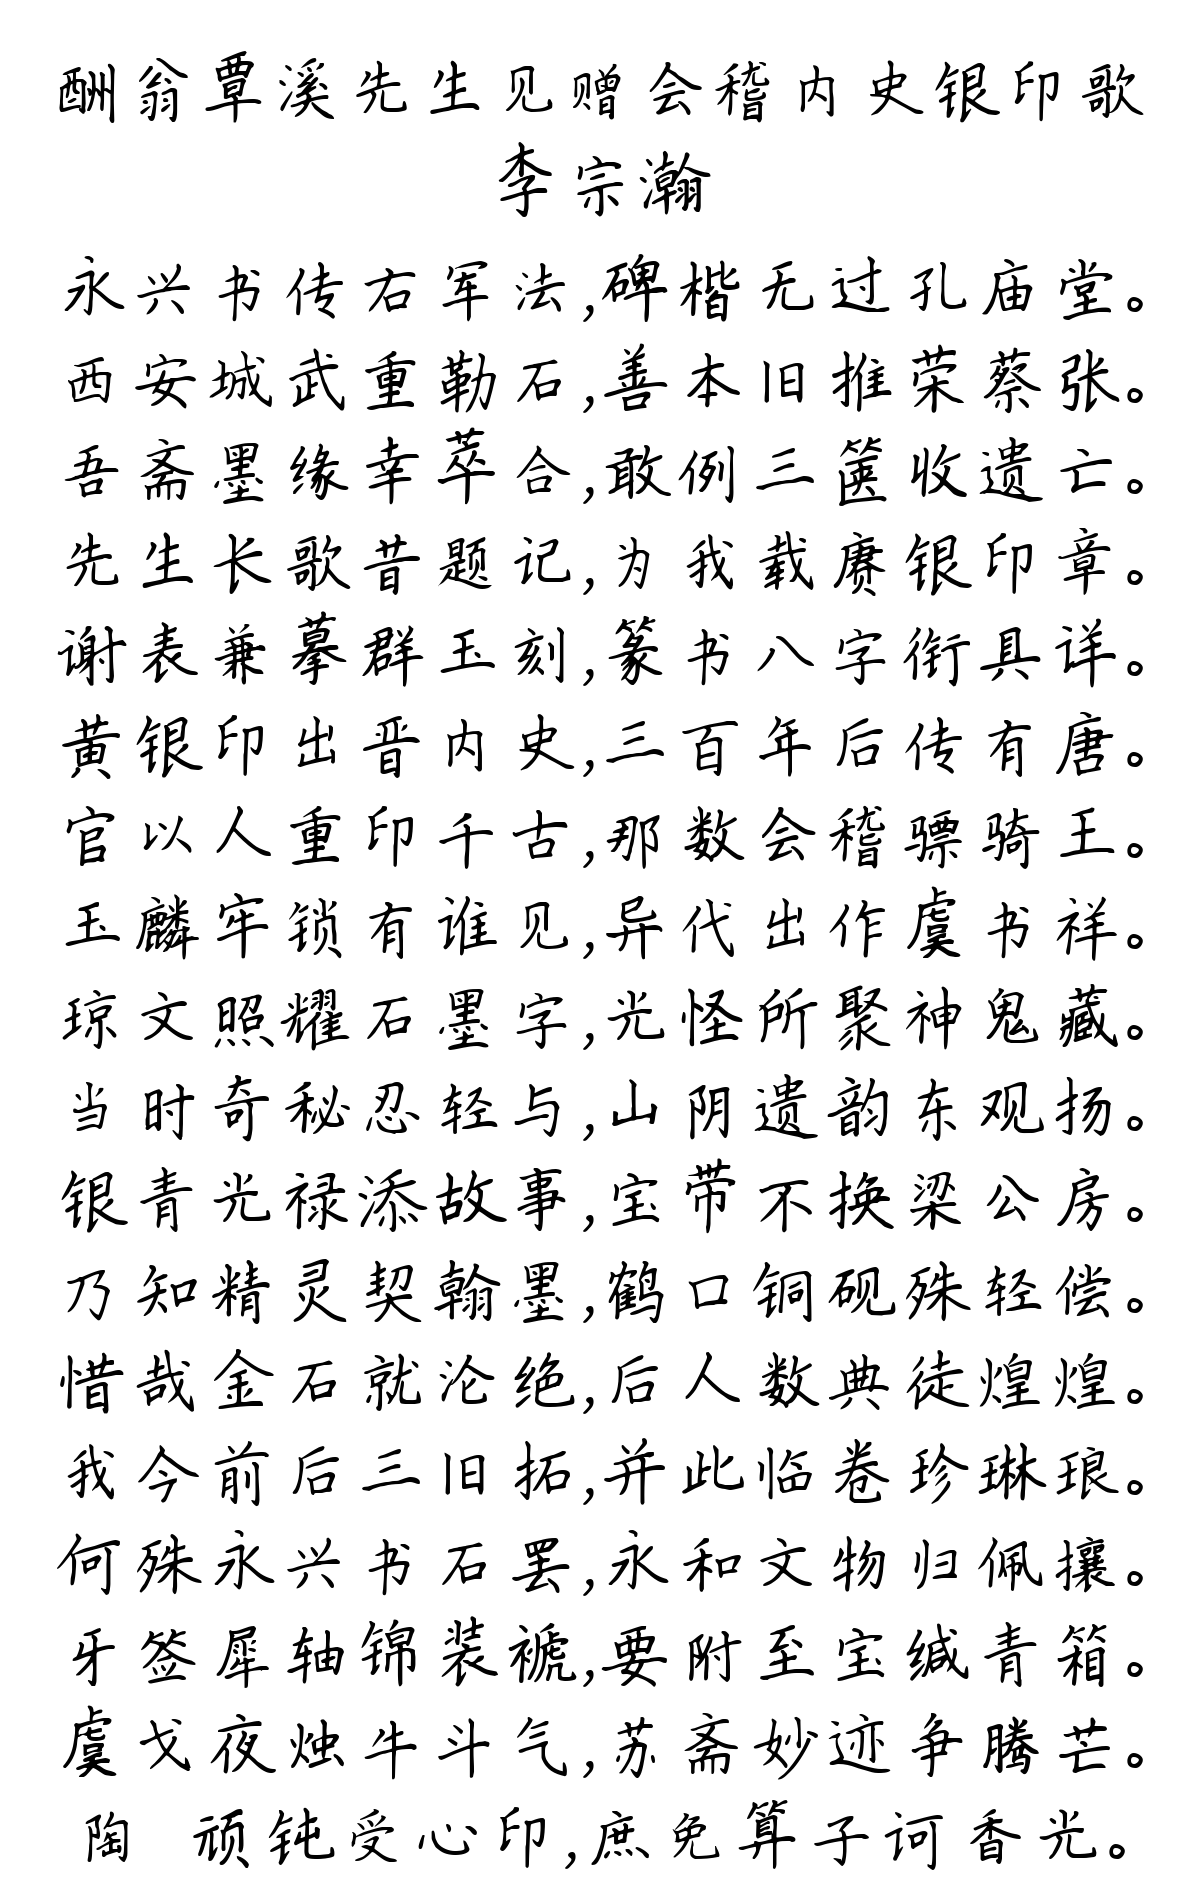 酬翁覃溪先生见赠会稽内史银印歌
李宗瀚
永兴书传右军法,碑楷无过孔庙堂。
西安城武重勒石,善本旧推荣蔡张。
吾斋墨缘幸萃合,敢例三箧收遗亡。
先生长歌昔题记,为我载赓银印章。
谢表兼摹群玉刻,篆书八字衔具详。
黄银印出晋内史,三百年后传有唐。
官以人重印千古,那数会稽骠骑王。
玉麟牢锁有谁见,异代出作虞书祥。
琼文照耀石墨字,光怪所聚神鬼藏。
当时奇秘忍轻与,山阴遗韵东观扬。
银青光禄添故事,宝带不换梁公房。
乃知精灵契翰墨,鹤口铜砚殊轻偿。
惜哉金石就沦绝,后人数典徒煌煌。
我今前后三旧拓,并此临卷珍琳琅。
何殊永兴书石罢,永和文物归佩攘。
牙签犀轴锦装褫,要附至宝缄青箱。
虞戈夜烛牛斗气,苏斋妙迹争腾芒。
陶 顽钝受心印,庶免算子诃香光。